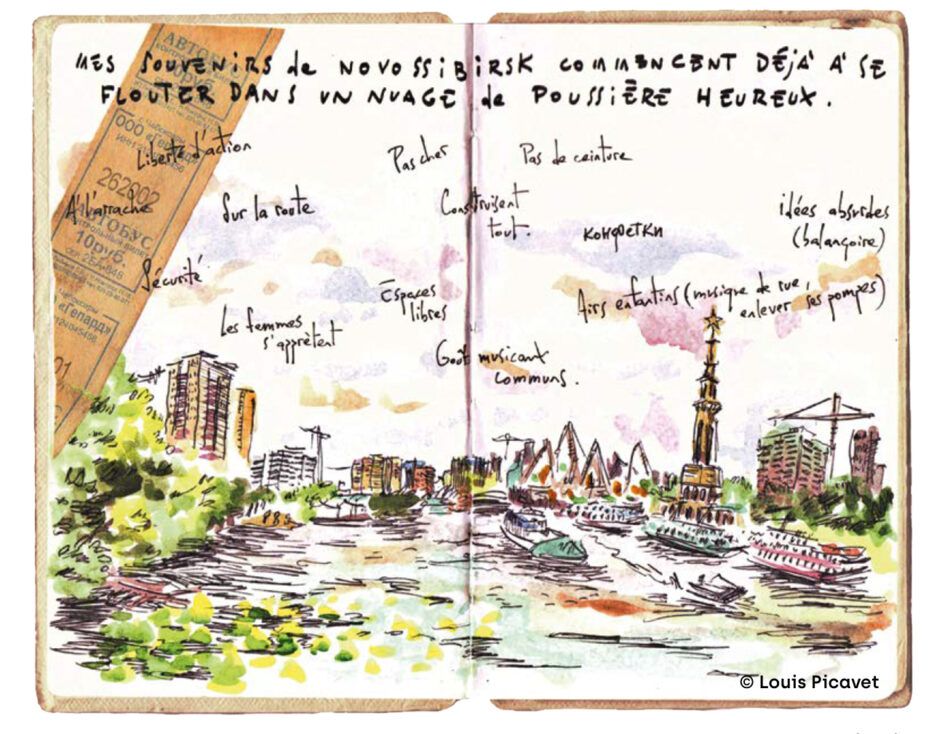 MES SOUVENIRS de NOVOSSIBIRSK COMMENCENT DÉJÀ À SE
FLOUTER DANS UN NUAGE de POUSSIÈRE HEUREUX.
АВТОБУС
10руб.
ООО «Гепард»
262002
АВТОБУС
контрольный билет
10руб.
«Гепард»
01
Liberté d'action
Pas cher
Pas de ceinture
À l'arrache
Sur la route
Construisent
tout.
конфетки
idées absurdes
(balançoire)
Sécurité
Espaces
libres
Airs enfantins (musique de rue,
enlever ses pompes)
Les femmes
s'apprêtent
Goût musicaux
communs.
© Louis Picavet